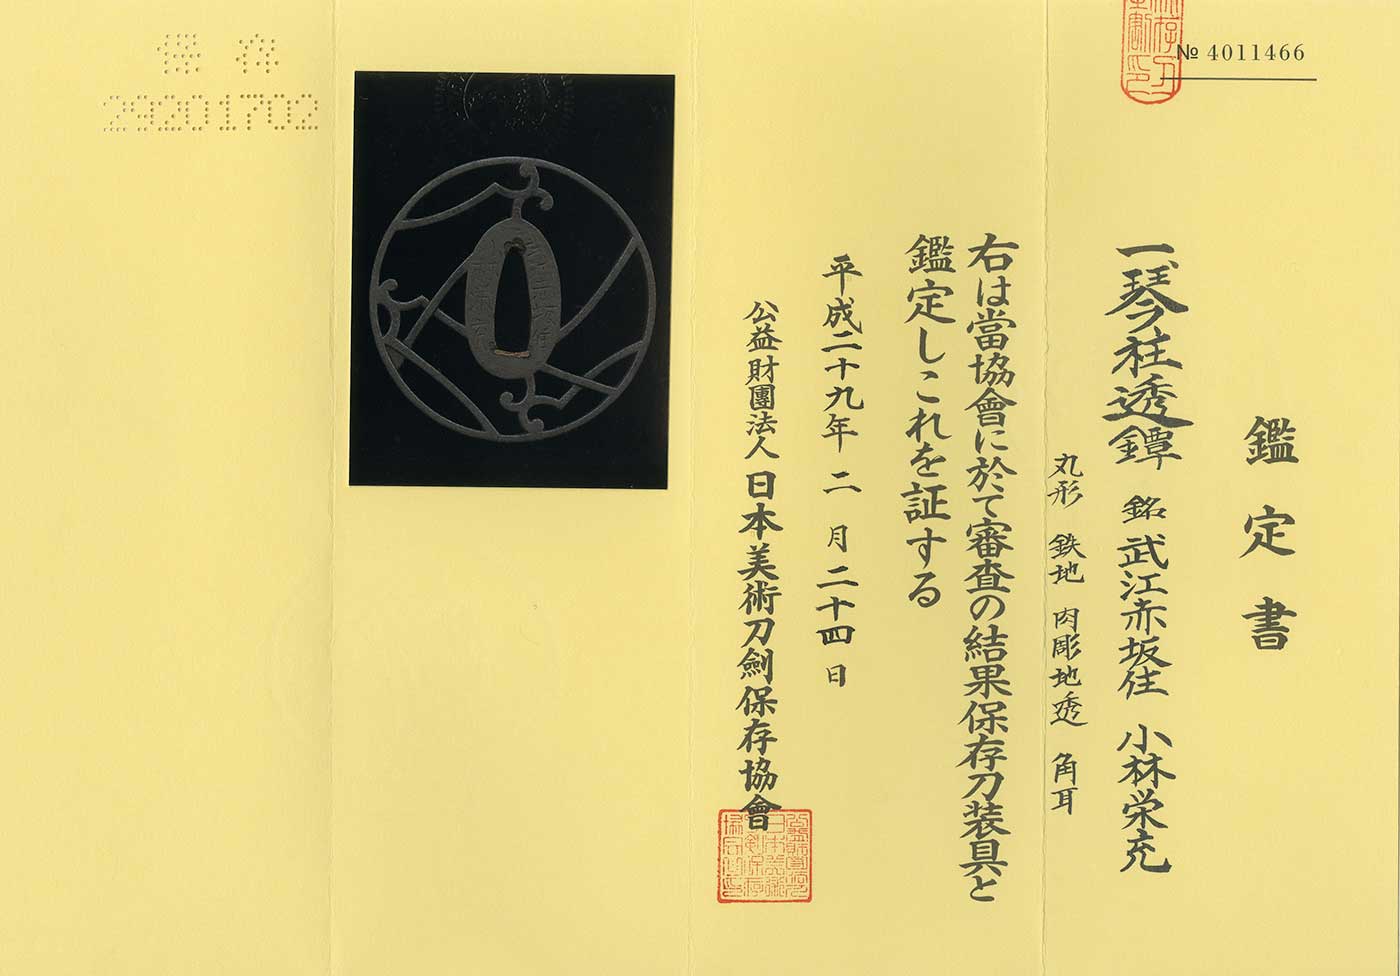 № 4011466
鑑定書
一、琴柱透鐔 銘 武江赤坂住 小林栄充
丸形 鉄地 肉彫地透 角耳
右は當協會に於て審査の結果保存刀装具と
鑑定しこれを証する
平成二十九年 二 月 二十四 日
公益財團法人 日本美術刀劍保存協會
保存
29201702